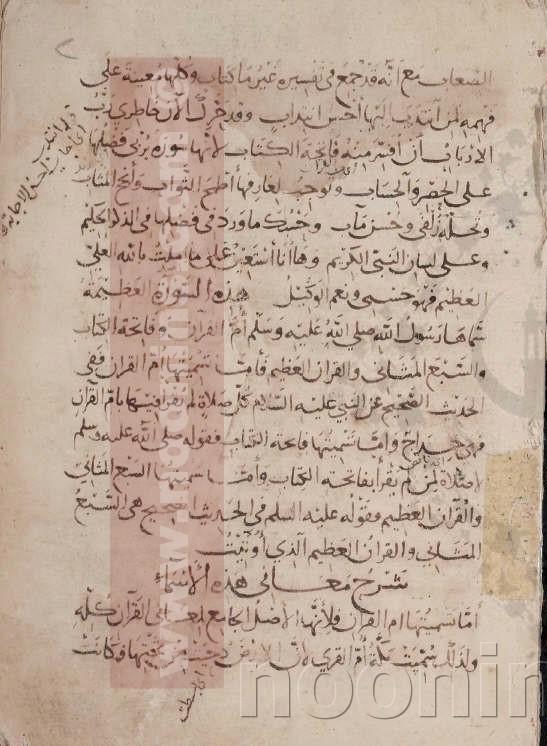 الصعاب مع انه قد جمع في تفسيره غير ما كتاب وكلها معينة على
فهمه لمن انتدب اليها احسن انتداب وقد حرك الآن خاطري رب
الارباب أن أفسر منه فاتحة الكتاب لأنها سورة يربى فضلها
على الحصر والحساب وتوجب لعارفها أعظم الثواب وأنجح المتاب
وتحله زلفى وحسن مآب وحسبك ما ورد في فضلها في الذكر الحكيم
وعلى لسان النبي الكريم وها أنا أستعين على ما املت بالله العلي
العظيم فهو حسبي ونعم الوكيل هذه السورة العظيمة
سماها رسول الله صلى الله عليه وسلم أم القرآن وفاتحة الكتاب
والسبع المثاني والقران العظيم فأما تسميتها ام القران ففي
الحديث الصحيح عن النبي عليه السلام كل صلاة لم يقرأ فيها بام القرآن
فهي خداج واما تسميتها فاتحة الكتاب فقوله صلى الله عليه وسلم
لا صلاة لمن لم يقرأ بفاتحة الكتاب وأما تسميتها السبع المثاني
والقرآن العظيم فقوله عليه السلم في الحديث الصحيح هي السبع
المثاني والقران العظيم الذي أوتيت
شرح معاني هذه الأسماء
أما تسميتها ام القران فلأنها الأصل الجامع لمعاني القرآن كله
ولذلك سميت مكة أم القرى لأن الارض دحيت من تحتها وكانت
اي بسطت
www.noorin
noonin